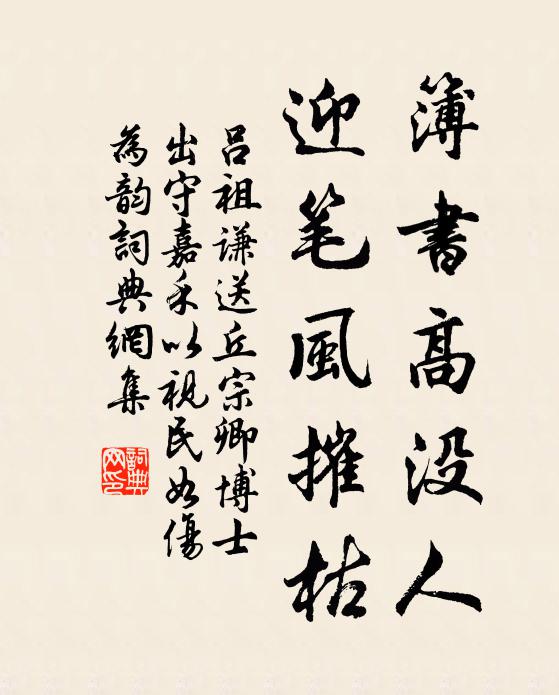 簿書高没人
迎笔風摧枯
呂祖謙送丘宗卿博士
出守嘉禾以視民如傷
為韵詞典網集
詞典
网印